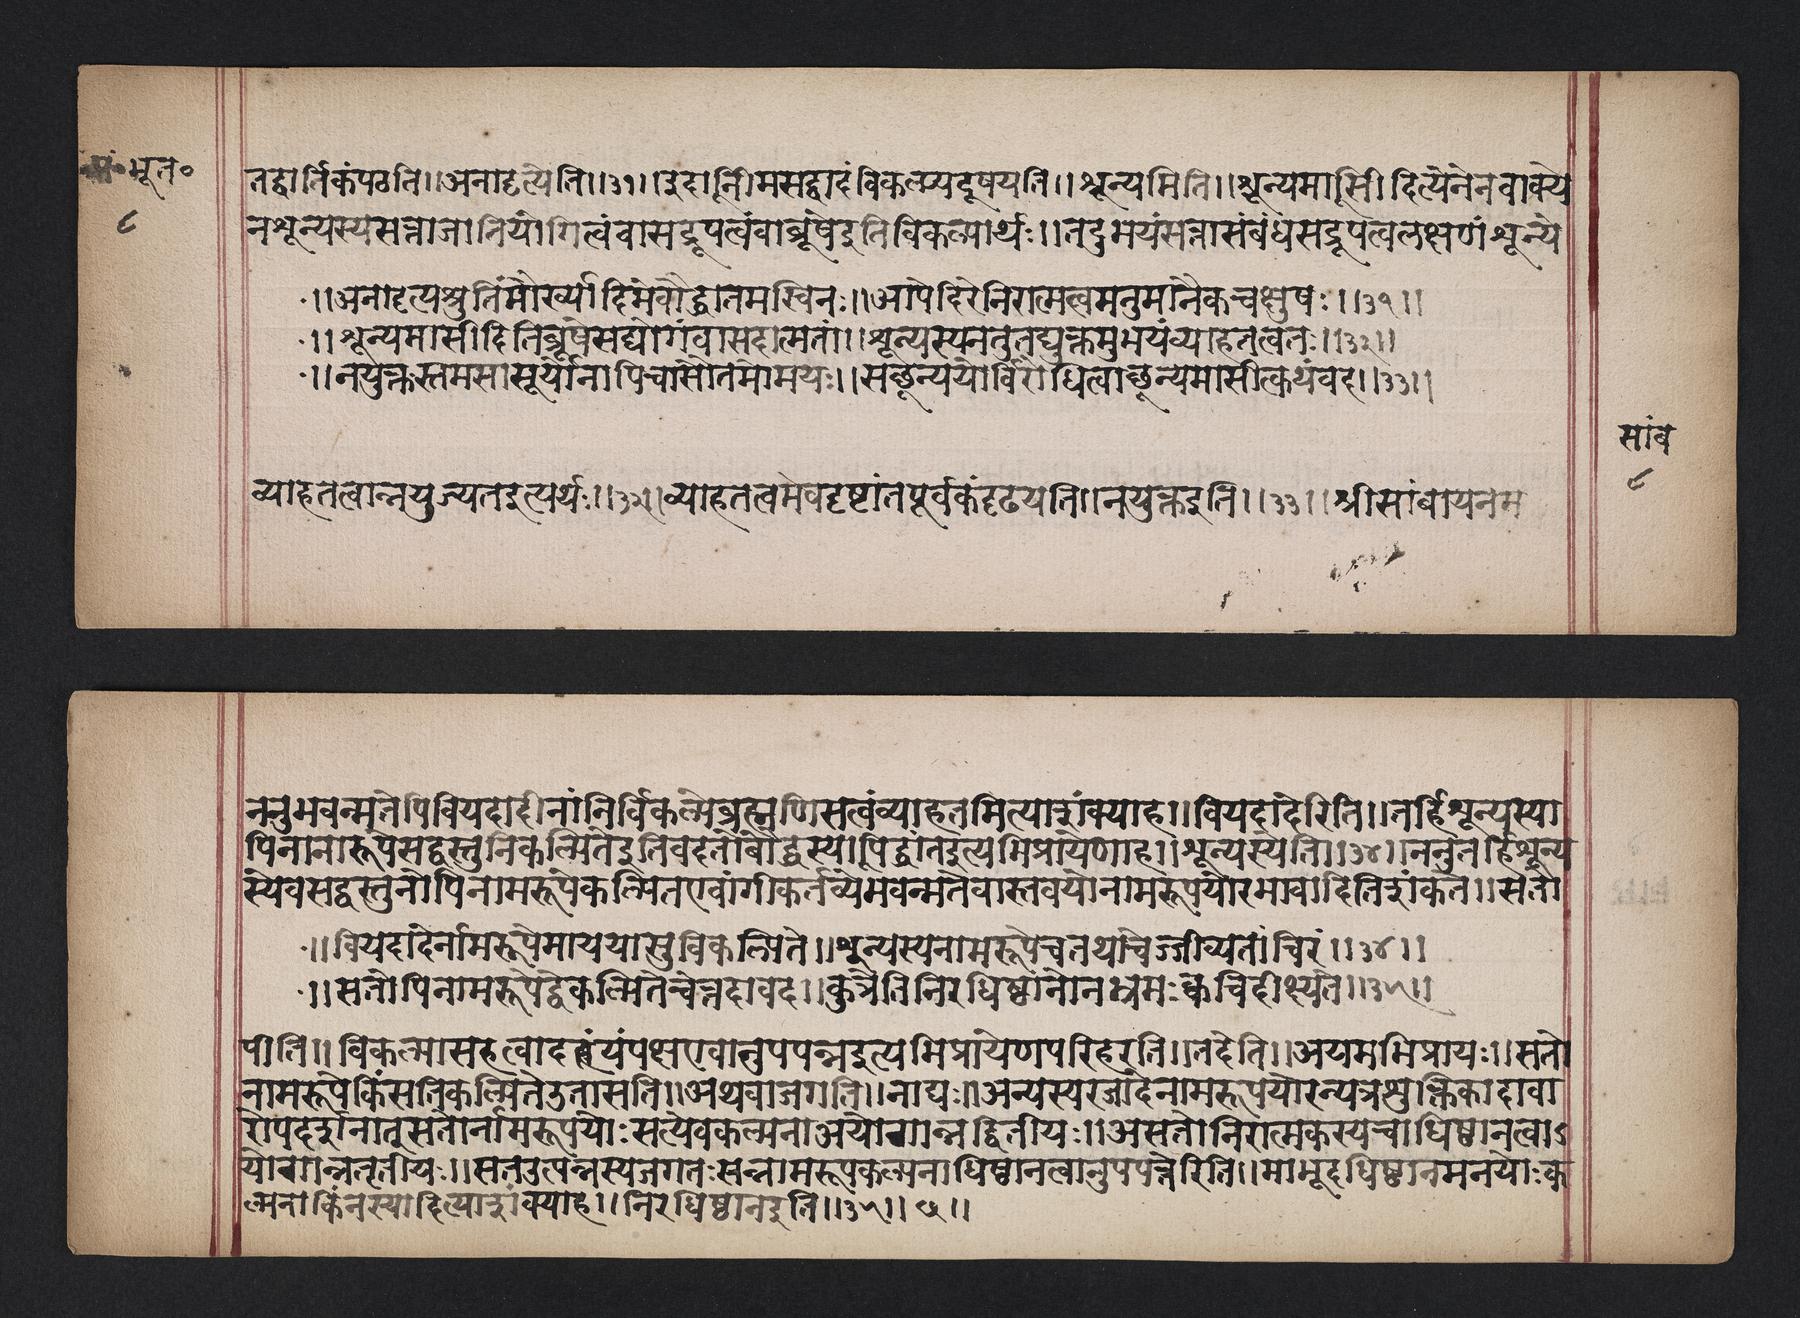 पं॰भूत॰
८
तद्वार्तिकंपठति॥अनादृत्येति॥३१॥इदानीमसद्वादंविकल्प्यदूषयति॥शून्यमिति॥शून्यमासीदित्यनेनवाक्ये
नशून्यस्यसत्ताजातियोगित्वंवासद्रूपत्वंवाब्रूषेइतिविकल्पार्थः॥तदुभयंसत्तासंबंधसद्रूपत्वलक्षणंशून्ये
॥अनादृत्यश्रुतिंमौर्ख्यादिमेबौद्धातमस्विनः॥आपेदिरेनिरात्मत्वमनुमानैकचक्षुषः॥३१॥
॥शून्यमासीदितिब्रूषेसद्योगंवासदात्मतां॥शून्यस्यनतुतद्युक्तमुभयंव्याहतत्वतः॥३२॥
॥नयुक्तस्तमसासूर्योनापिचासौतमोमयः॥सछून्ययोर्विरोधित्वाछून्यमासीत्कथंवद॥३३॥
सांब
८
व्याहतत्वान्नयुज्यतइत्यर्थः॥३२॥व्याहतत्वमेवदृष्टांतपूर्वकंदृढयति॥नयुक्तइति॥३३॥श्रीसांबायनम
ननुभवन्मतेपिवियदादीनांनिर्विकल्पेब्रह्मणिसत्वंव्याहतमित्याशंक्याह॥वियदादेरिति॥तर्हिशून्यस्या
पिनानारूपेसद्वस्तुनिकल्पितेइतिवदतोबौद्धस्यापिद्धांतइत्यभिप्रायेणाह॥शून्यस्येति॥३४॥ननुतर्हिशून्य
स्येवसद्वस्तुनोपिनामरूपेकल्पितएवांगीकर्तव्येभवन्मतेवास्तवयोनामरूपयोरभावादितिशंकते॥सतो
॥वियदादेर्नामरूपेमाययासुविकल्पिते॥शून्यस्यनामरूपेचतथाचेज्जीव्यतांचिरं॥३४॥
॥सतोपिनामरूपेद्वेकल्पितेचेत्तदावद॥कुत्रेतिनिरधिष्ठानोनभ्रमःक्वचिदीक्ष्यते॥३५॥
पीति॥विकल्पासहत्वादयंपक्षएवानुपपन्नइत्यभिप्रायेणपरिहरति॥तदेति॥अयमभिप्रायः॥सतो
नामरूपेकिंसतिकल्पितेउतासति॥अथवाजगति॥नाद्यः॥अन्यस्यरजतादेनामरूपयोरन्यत्रशुक्तिकादावा
रोपदर्शनात्सतोर्नामरूपयोःसत्येवकल्पनाअयोगान्नद्वितीयः॥असतोनिरात्मकस्यचाधिष्ठानत्वाऽ
योगान्नतृतीयः॥सतउत्पन्नस्यजगतःसन्नामरूपकल्पनाधिष्ठानत्वानुपपत्तेरिति॥माभूदधिष्ठानमनयोःक
ल्पनाकिंनस्यादित्याशंक्याह॥निरधिष्ठानइति॥३५॥छ॥